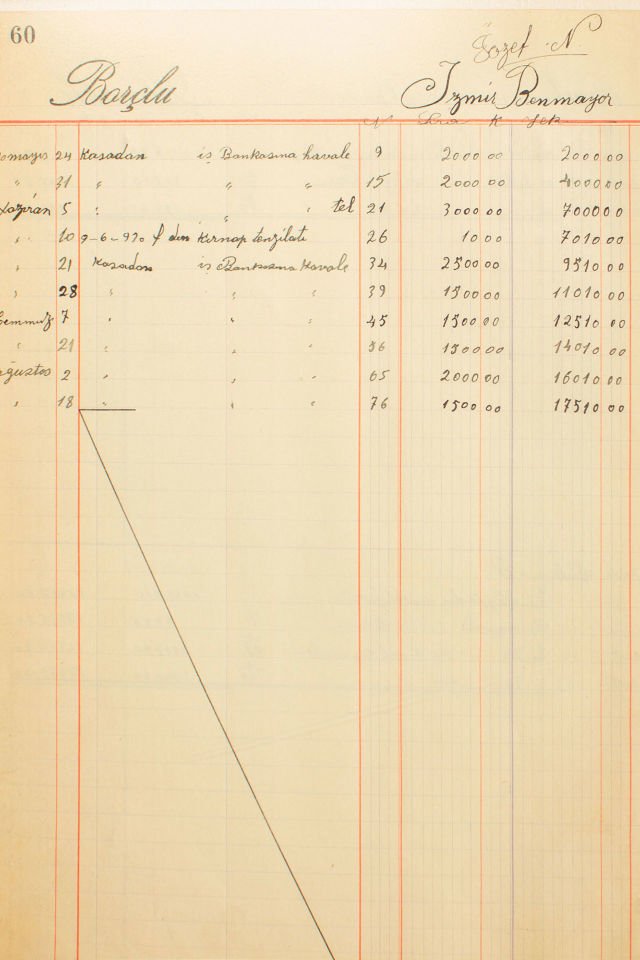 60
Jozef N.
Borçlu
Izmir Benmayor
N Lira K Yek
mayıs 24 Kasadan is Bankasına havale 9 2000 00 2000 00
" 31 " " " 15 2000 00 4000 00
Haziran 5 " " " tel 21 3000 00 7000 00
" 10 9-6-930 f den Kırnap tenzilatı 26 10 00 7010 00
" 21 Kasadan is Bankasına havale 34 2500 00 9510 00
" 28 " " " 39 1500 00 11010 00
Temmuz 7 " " " 45 1500 00 12510 00
" 21 " " " 56 1500 00 14010 00
Ağustos 2 " " " 65 2000 00 16010 00
" 18 " " " 76 1500 00 17510 00